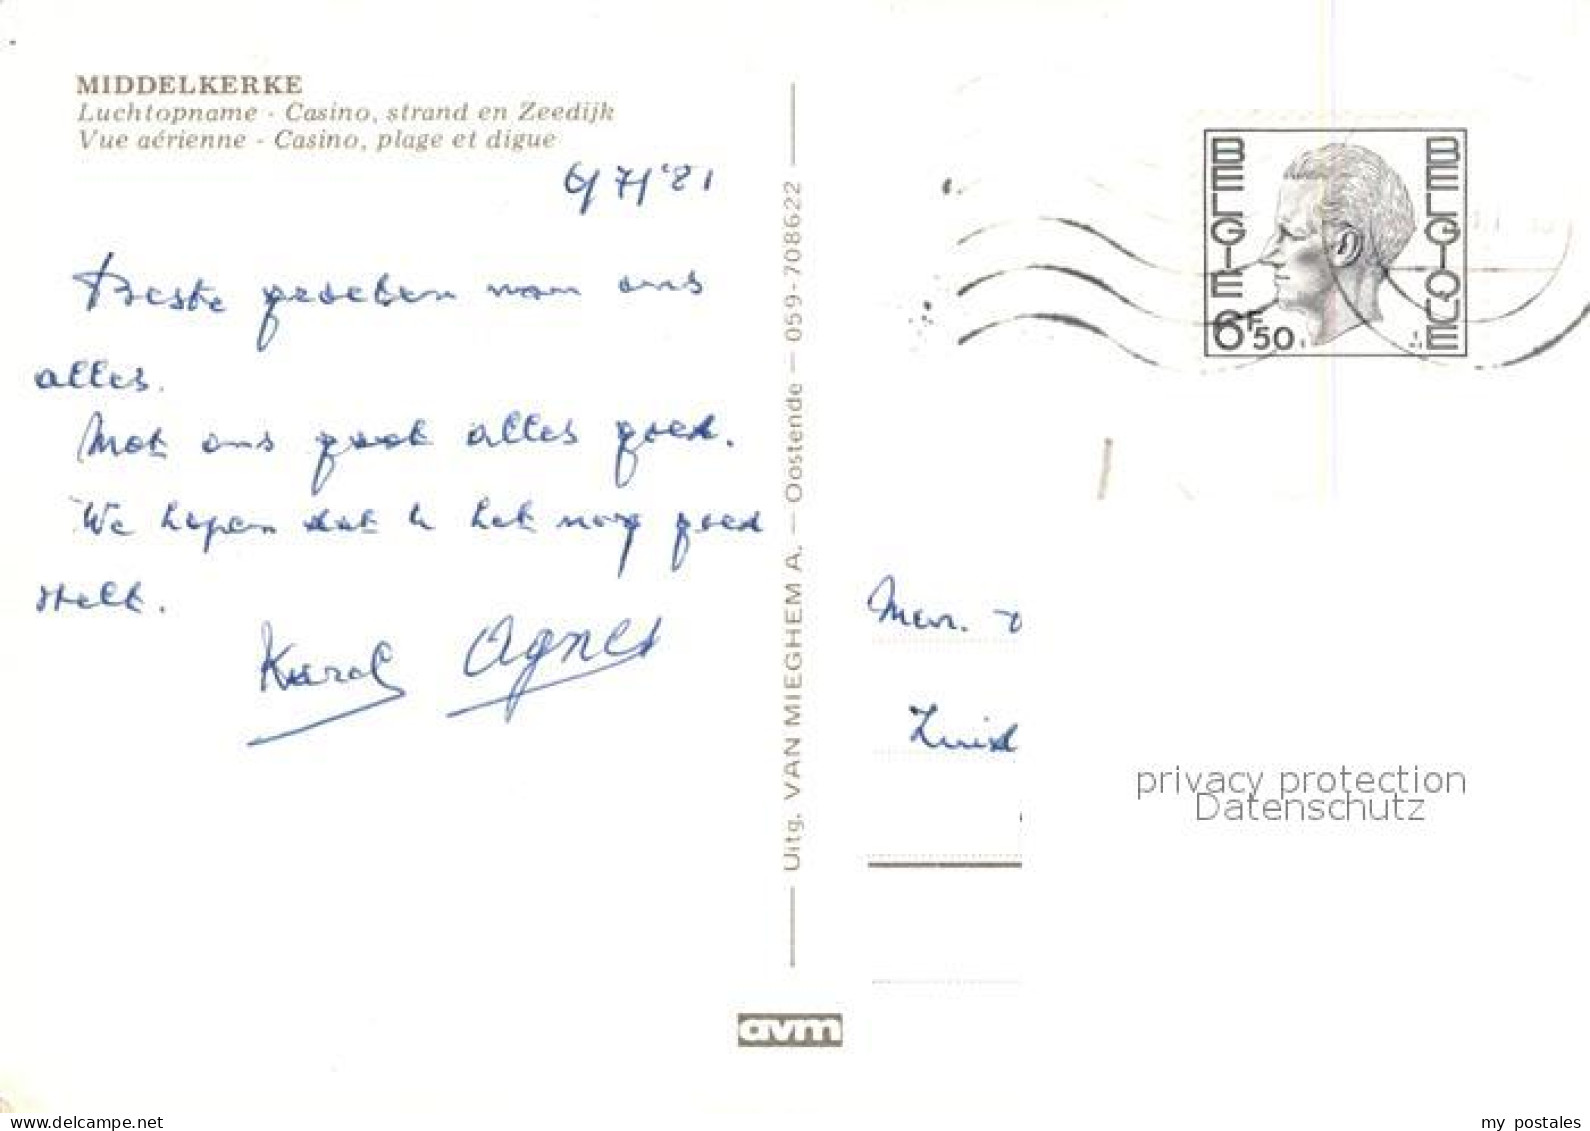 MIDDELKERKE
Luchtopname - Casino, strand en Zeedijk
Vue aérienne - Casino, plage et digue
6/7/'81
Beste groeten van ons
alles.
Met ons gaat alles goed.
We hopen dat u het nog goed
stelt.
Karel Agnes
Uitg. VAN MIEGHEM A. — Oostende — 059-708622
avm
BELGIE
BELGIQUE
6F50
Mevr.
Zuid
privacy protection
Datenschutz
my postales